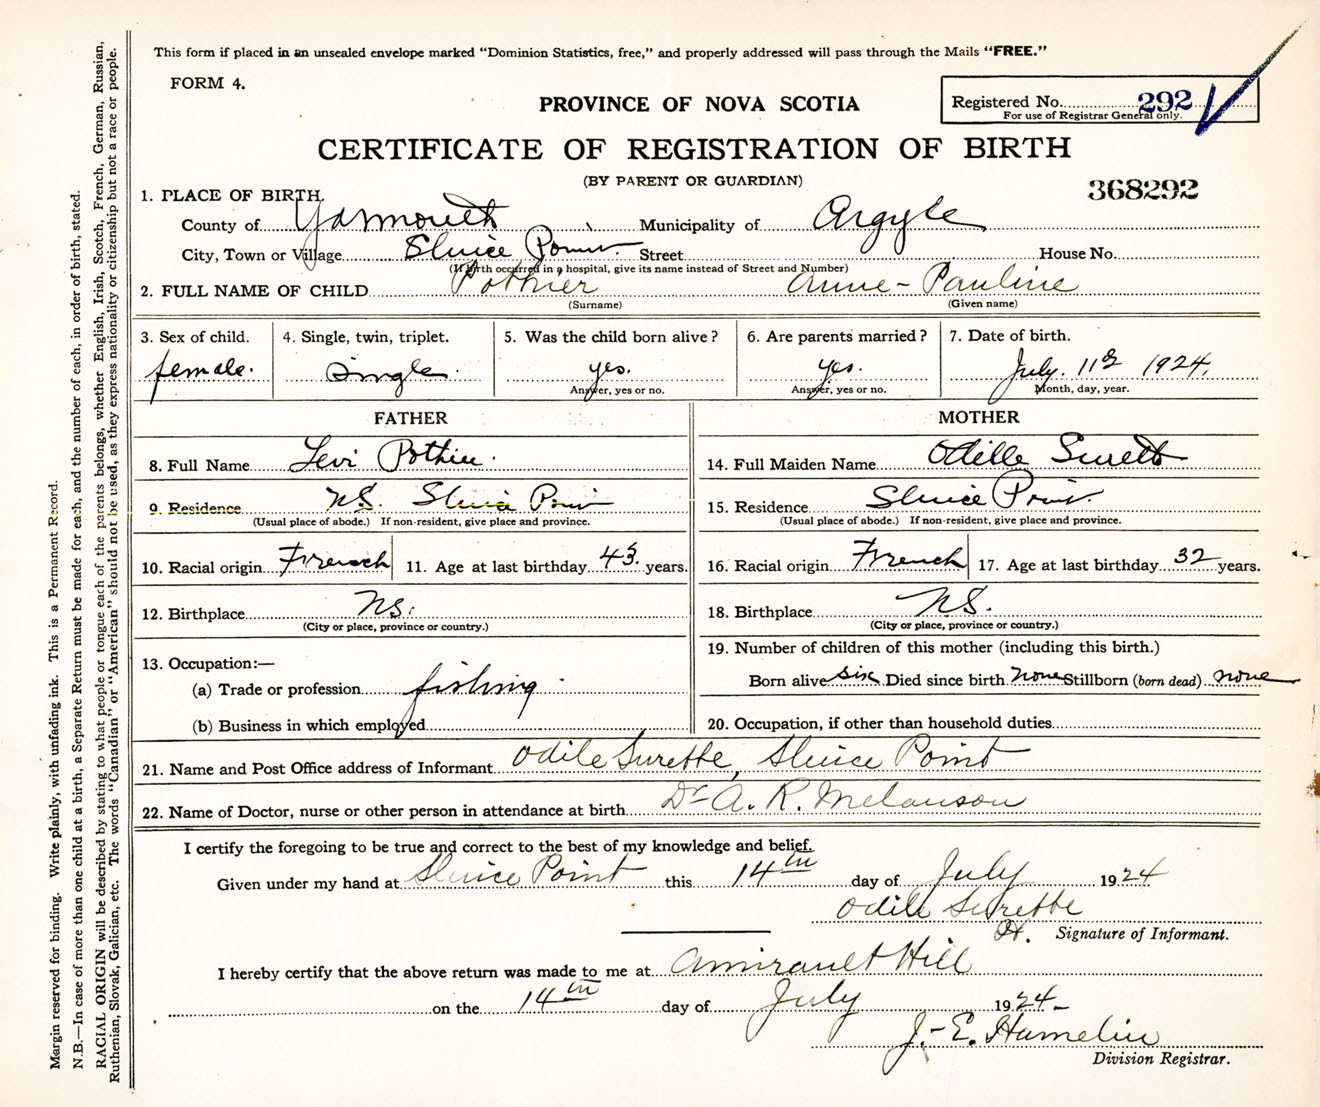 This form if placed in an unsealed envelope marked "Dominion Statistics, free," and properly addressed will pass through the Mails "FREE."
FORM 4.
PROVINCE OF NOVA SCOTIA
Registered No. 292
For use of Registrar General only.
CERTIFICATE OF REGISTRATION OF BIRTH
(BY PARENT OR GUARDIAN)
368292
1. PLACE OF BIRTH.
County of Yarmouth Municipality of Argyle
City, Town or Village Sluice Point Street House No.
(If birth occurred in a hospital, give its name instead of Street and Number)
2. FULL NAME OF CHILD Pothier Anne-Pauline
(Surname) (Given name)
3. Sex of child. 4. Single, twin, triplet. 5. Was the child born alive? 6. Are parents married? 7. Date of birth.
female. Single. yes. yes. July. 11th 1924.
Answer, yes or no. Answer, yes or no. Month, day, year.
FATHER MOTHER
8. Full Name Levi Pothier. 14. Full Maiden Name Odille Surett
9. Residence N.S. Sluice Point 15. Residence Sluice Point
(Usual place of abode.) If non-resident, give place and province. (Usual place of abode.) If non-resident, give place and province.
10. Racial origin French 11. Age at last birthday 43. years. 16. Racial origin French 17. Age at last birthday 32 years.
12. Birthplace N.S. 18. Birthplace N.S.
(City or place, province or country.) (City or place, province or country.)
13. Occupation:— 19. Number of children of this mother (including this birth.)
(a) Trade or profession fishing. Born alive six Died since birth none Stillborn (born dead) none
(b) Business in which employed 20. Occupation, if other than household duties
21. Name and Post Office address of Informant Odile Surette, Sluice Point
22. Name of Doctor, nurse or other person in attendance at birth Dr A. R. Melanson
I certify the foregoing to be true and correct to the best of my knowledge and belief.
Given under my hand at Sluice Point this 14th day of July 1924
Odile Surette
H. Signature of Informant.
I hereby certify that the above return was made to me at Amirault Hill
on the 14th day of July 1924-
J.-E. Hamelin
Division Registrar.
Margin reserved for binding. Write plainly, with unfading ink. This is a Permanent Record.
N.B.—In case of more than one child at a birth, a Separate Return must be made for each, and the number of each, in order of birth, stated.
RACIAL ORIGIN will be described by stating to what people or tongue each of the parents belongs, whether English, Irish, Scotch, French, German, Russian,
Ruthenian, Slovak, Galician, etc. The words "Canadian" or "American" should not be used, as they express nationality or citizenship but not a race or people.